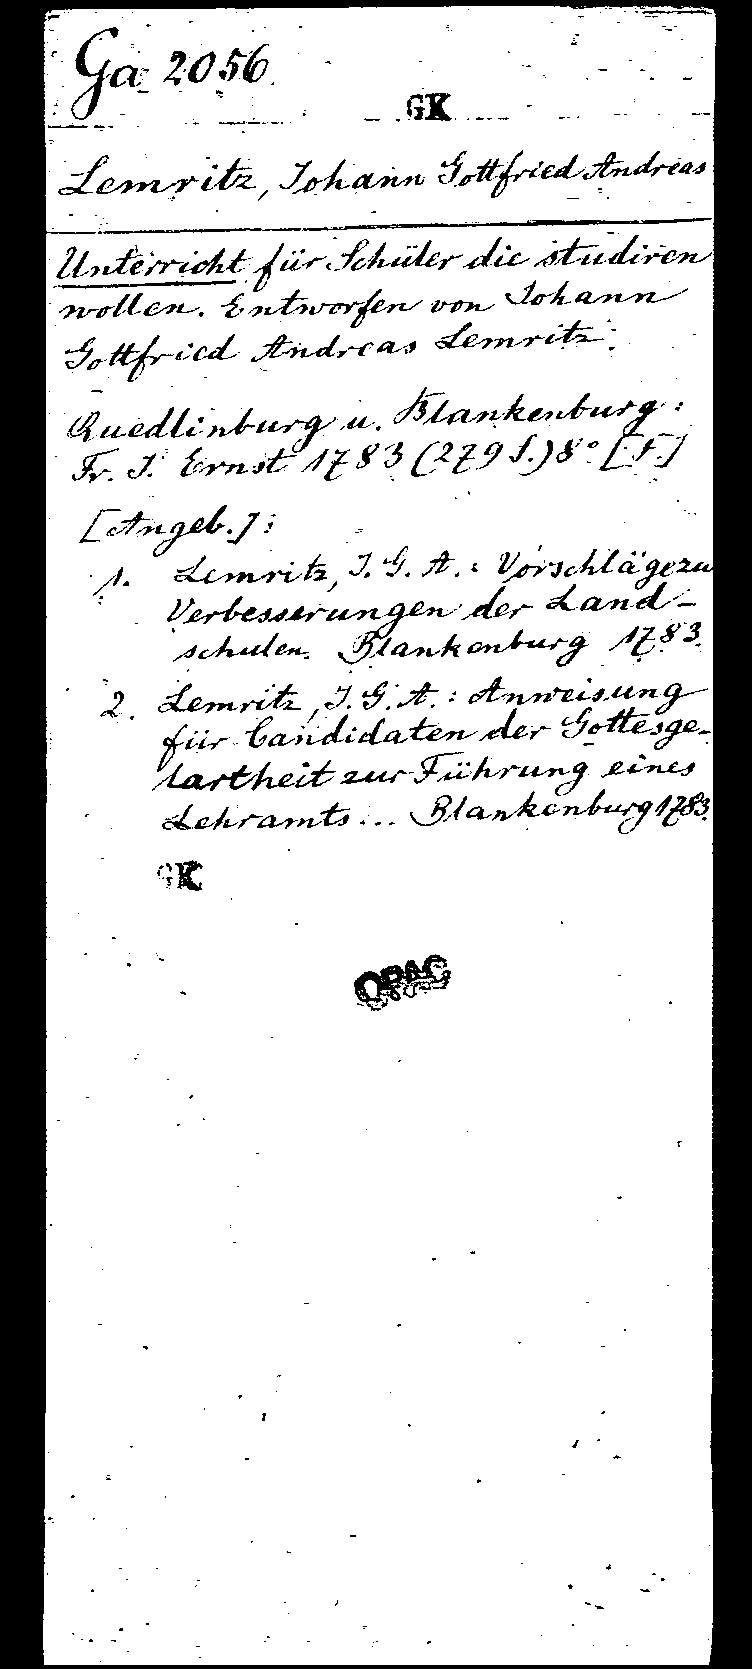 Ga 2056
GK
Lemritz, Johann Gottfried Andreas
Unterricht für Schüler die studiren
wollen. Entworfen von Johann
Gottfried Andreas Lemritz.
Quedlinburg u. Blankenburg:
Fr. J. Ernst 1783 (279 S.) 8° [F.]
[Angeb.]:
1. Lemritz, J. G. A.: Vorschläge zu
Verbesserungen der Land-
schulen. Blankenburg 1783.
2. Lemritz, J. G. A.: Anweisung
für Candidaten der Gottesge-
lartheit zur Führung eines
Lehramts... Blankenburg 1783.
GK
OPAC